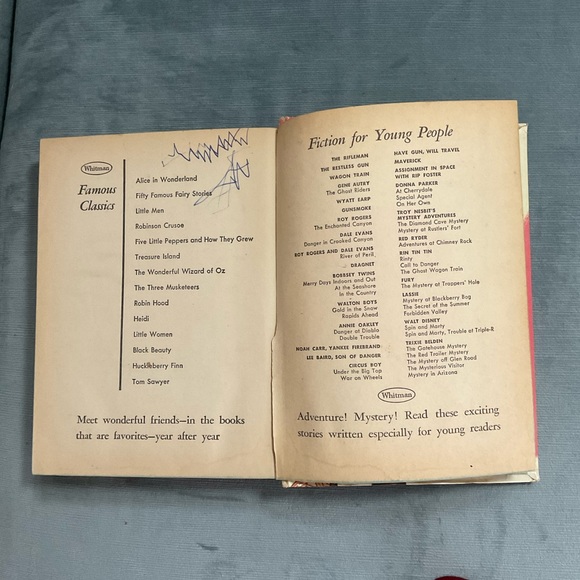 Whitman
Famous
Classics
Alice in Wonderland
Fifty Famous Fairy Stories
Little Men
Robinson Crusoe
Five Little Peppers and How They Grew
Treasure Island
The Wonderful Wizard of Oz
The Three Musketeers
Robin Hood
Heidi
Little Women
Black Beauty
Huckleberry Finn
Tom Sawyer
Meet wonderful friends—in the books
that are favorites—year after year
Fiction for Young People
THE RIFLEMAN
THE RESTLESS GUN
WAGON TRAIN
GENE AUTRY
The Ghost Riders
WYATT EARP
GUNSMOKE
ROY ROGERS
The Enchanted Canyon
DALE EVANS
Danger in Crooked Canyon
ROY ROGERS AND DALE EVANS
River of Peril
DRAGNET
BOBBSEY TWINS
Merry Days Indoors and Out
At the Seashore
In the Country
WALTON BOYS
Gold in the Snow
Rapids Ahead
ANNIE OAKLEY
Danger at Diablo
Double Trouble
NOAH CARR, YANKEE FIREBRAND
LEE BAIRD, SON OF DANGER
CIRCUS BOY
Under the Big Top
War on Wheels
HAVE GUN, WILL TRAVEL
MAVERICK
ASSIGNMENT IN SPACE
WITH RIP FOSTER
DONNA PARKER
At Cherrydale
Special Agent
On Her Own
TROY NESBIT'S
MYSTERY ADVENTURES
The Diamond Cave Mystery
Mystery at Rustlers' Fort
RED RYDER
Adventures of Chimney Rock
RIN TIN TIN
Rinty
Call to Danger
The Ghost Wagon Train
FURY
The Mystery at Trappers' Hole
LASSIE
Mystery at Blackberry Bog
The Secret of the Summer
Forbidden Valley
WALT DISNEY
Spin and Marty
Spin and Marty, Trouble at Triple-R
TRIXIE BELDEN
The Gatehouse Mystery
The Red Trailer Mystery
The Mystery off Glen Road
The Mysterious Visitor
Mystery in Arizona
Whitman
Adventure! Mystery! Read these exciting
stories written especially for young readers